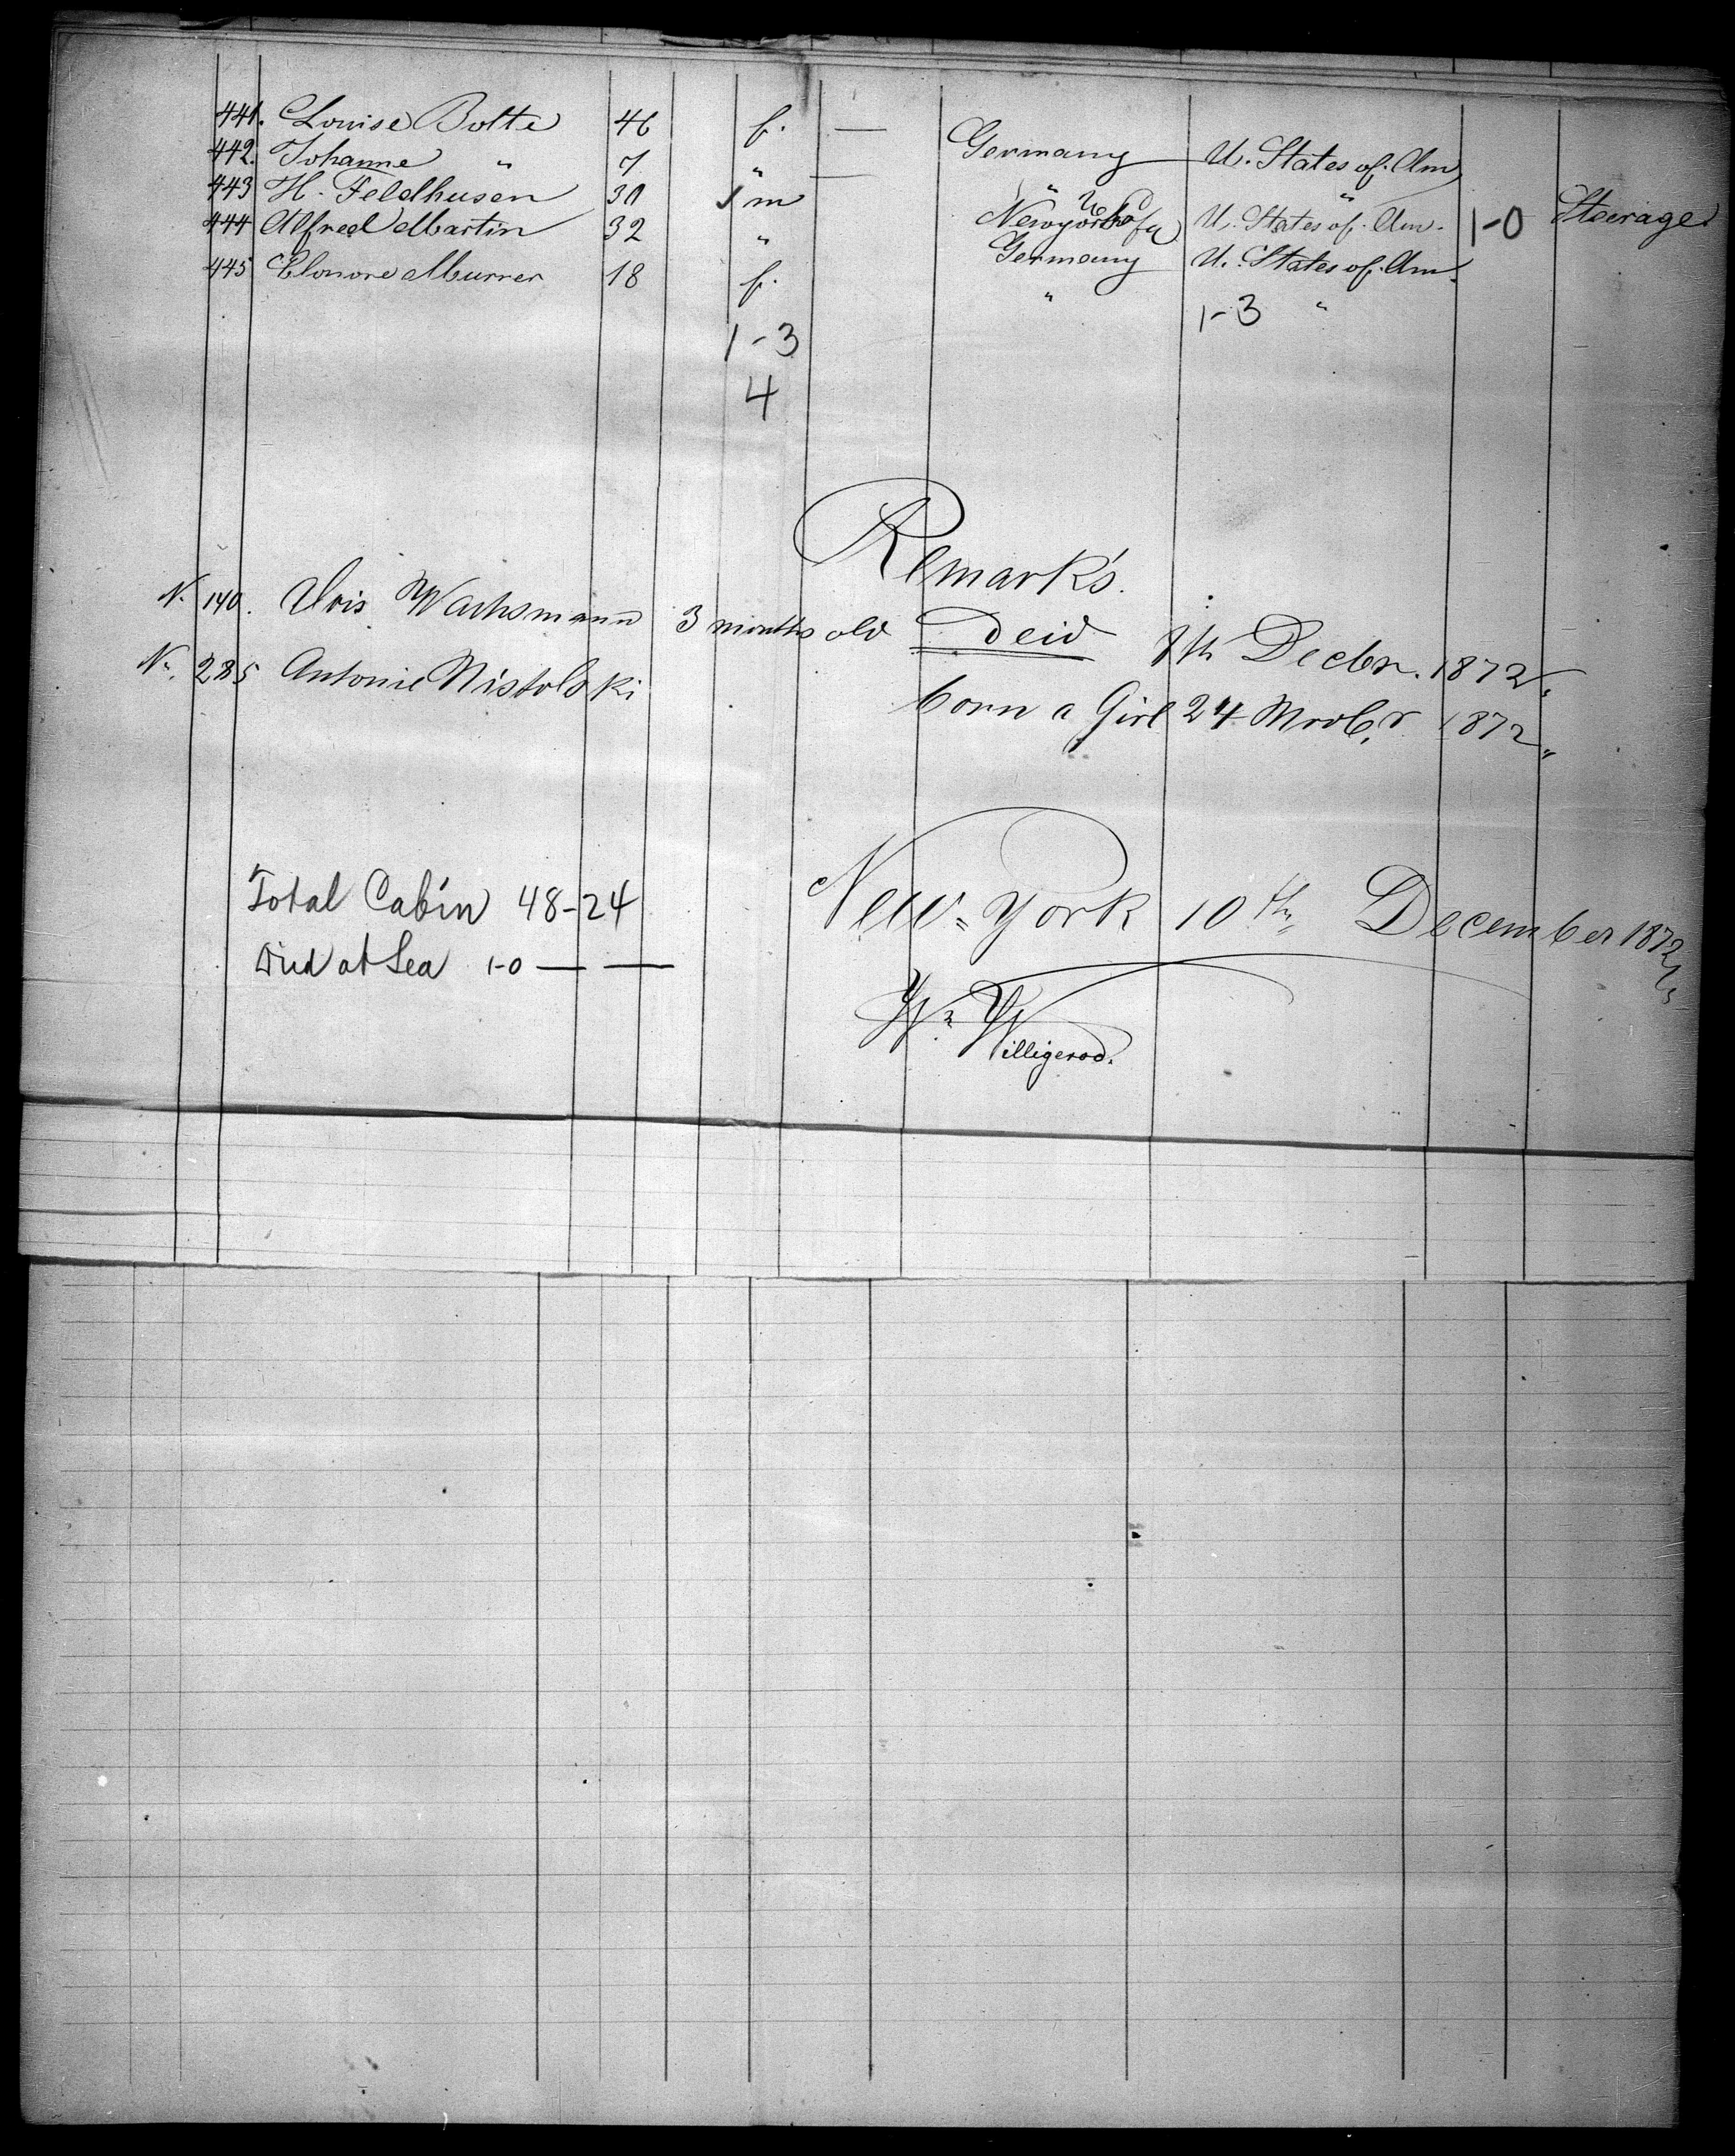 441. Louise Bolte 46 f. — Germany U. States of. Am
442. Johanne " 7 " — " "
443 H. Feldhusen 30 1 m Newyork U. States of. Am. 1-0 Steerage
444 Alfred Martin 32 " Germany U. States of. Am.
445 Elonore Murrer 18 f. " "
1-3 1-3
4
Remark's.
N. 140. Wachsmann 3 months old Deid 8th Decbr. 1872.
N. 285 Antonie Nistolski born a Girl 24 1872
Total Cabin 48-24
New-York 10th December 1872
Died at Sea 1-0 — —
W. Willigerod.